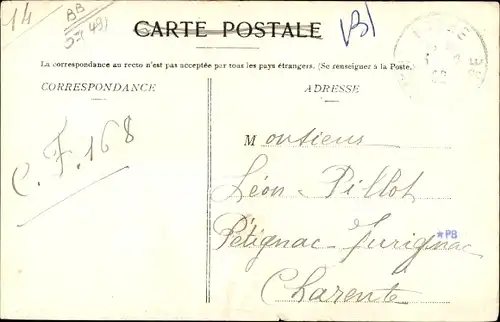 14
BB
(B)
CARTE POSTALE
La correspondance au recto n'est pas acceptée par tous les pays étrangers. (Se renseigner à la Poste.)
CORRESPONDANCE
ADRESSE
C.F.168
Monsieur
Léon Pillot
*PB
Pétignac-Jurignac
Charente